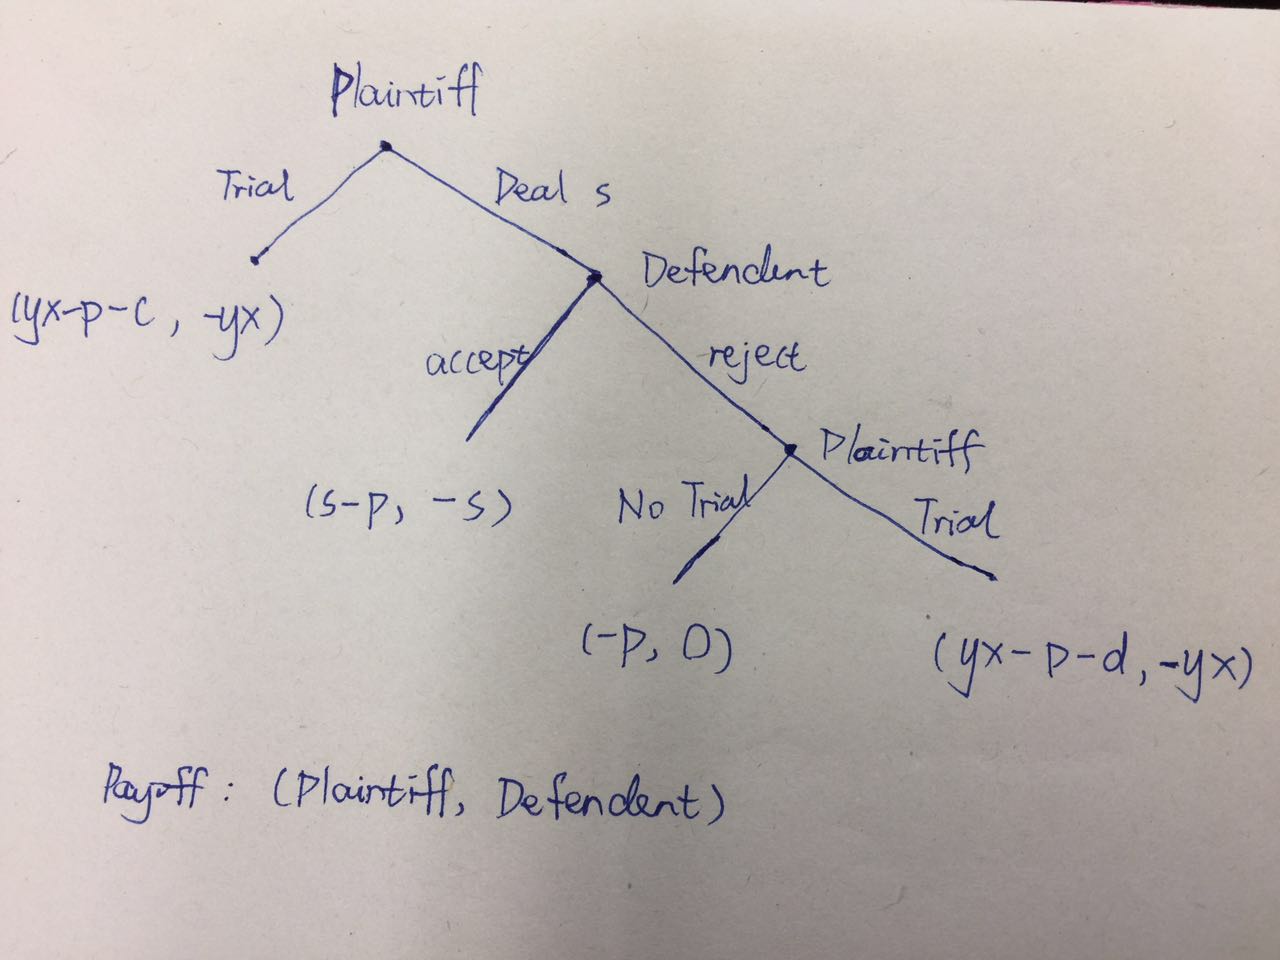 Plaintiff
Trial
Deal s
Defendent
(yx-p-c, -yx)
accept
reject
Plaintiff
(s-p, -s)
No Trial
Trial
(-p, 0)
(yx-p-d, -yx)
Payoff: (Plaintiff, Defendent)